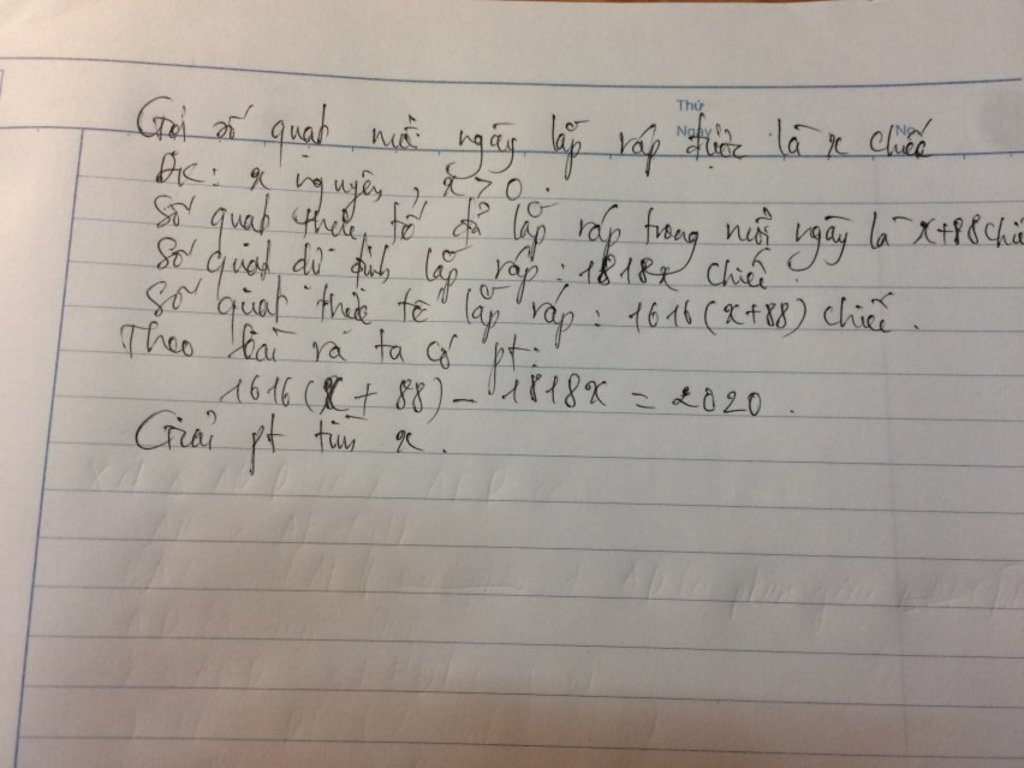 Thứ
Ngày No
Gọi số quạt mỗi ngày lắp ráp được là x chiếc
ĐK: x nguyên, x > 0.
Số quạt thực tế đã lắp ráp trong mỗi ngày là x+88 chiế
Số quạt dự định lắp ráp: 1818x chiếc.
Số quạt thực tế lắp ráp: 1616(x+88) chiếc.
Theo bài ra ta có pt:
1616(x + 88) - 1818x = 2020.
Giải pt tìm x.